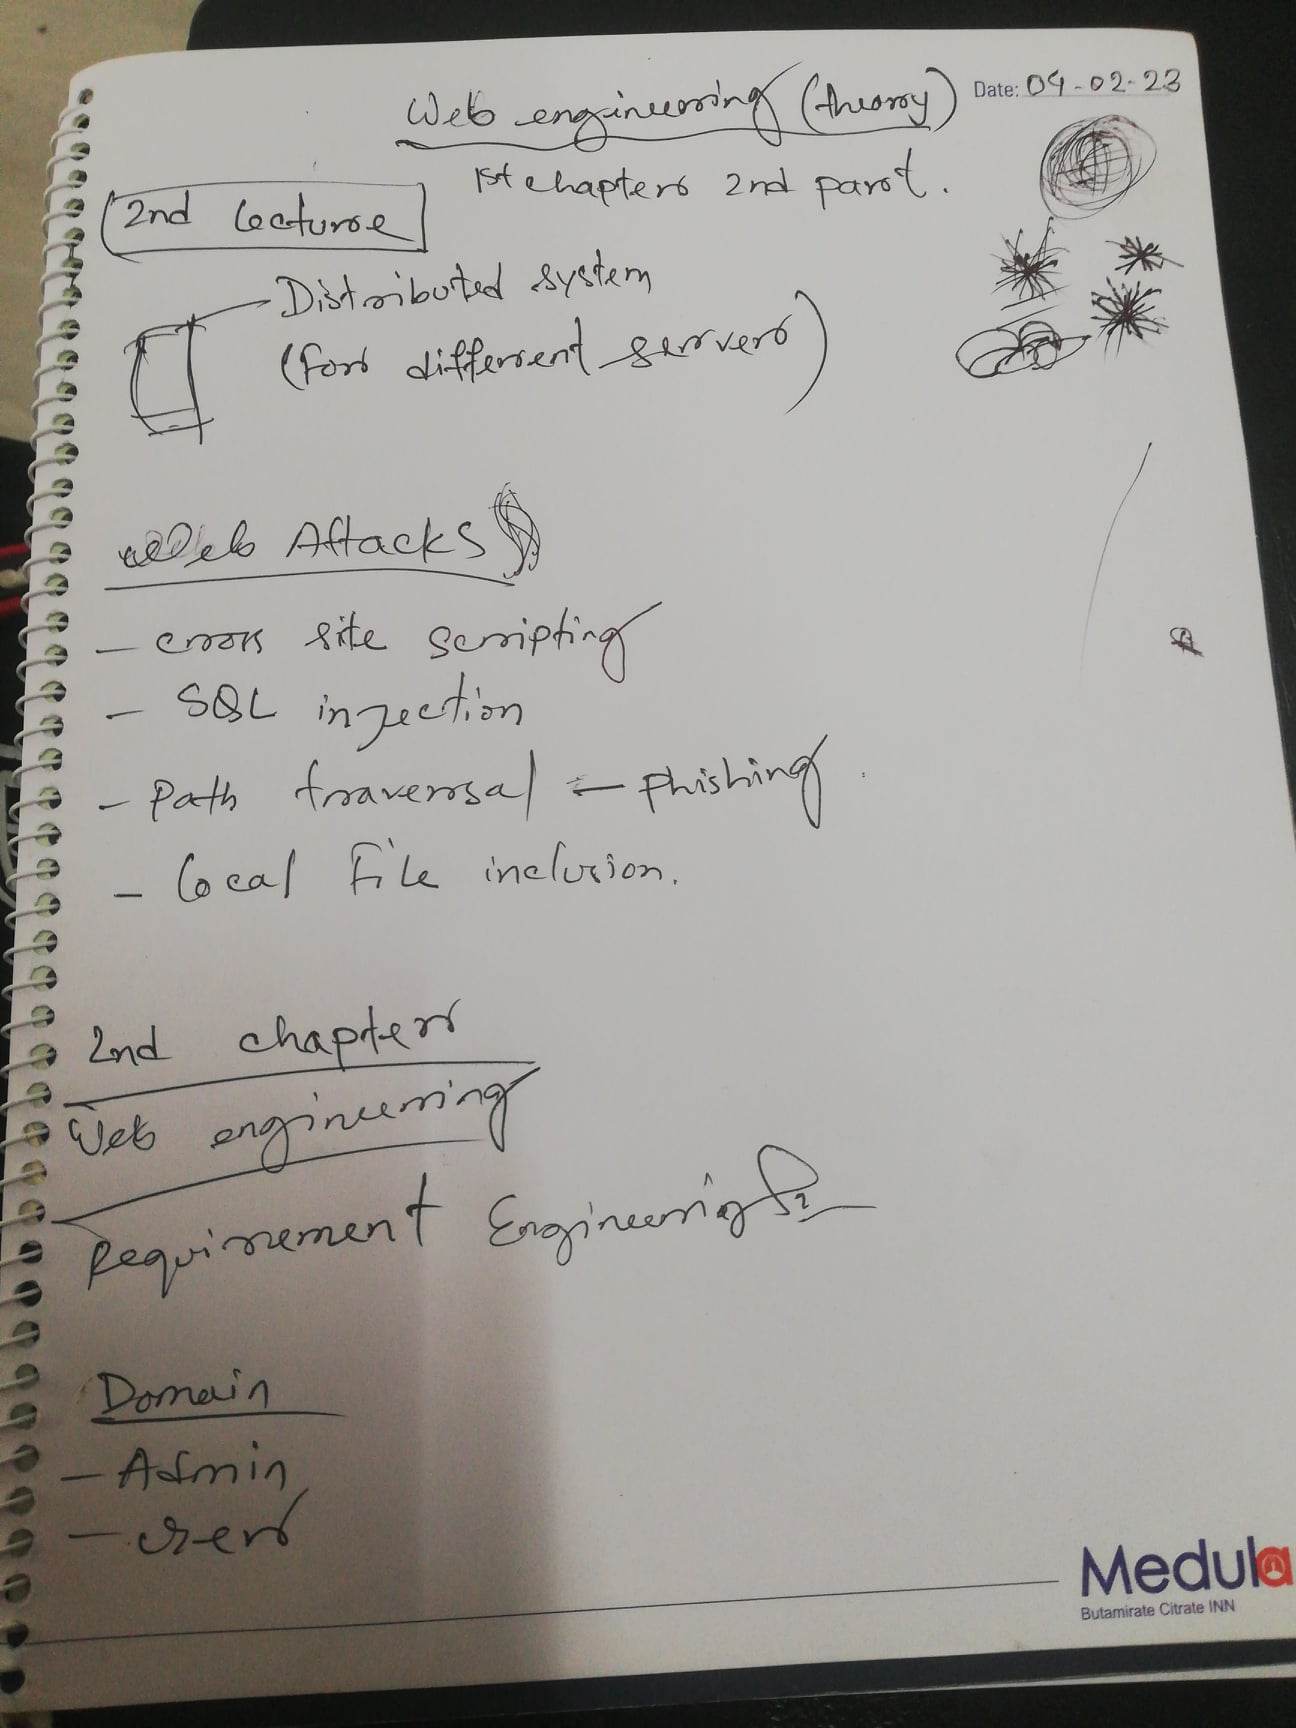 Web engineering (theory)
Date: 04-02-23
1st chapter 2nd part.
2nd Lecture
Distributed system
(For different server)
Web Attacks
- cross site scripting
- SQL injection
- Path traversal - Phishing
- Local File inclusion.
2nd chapter
Web engineering
Requirement Engineering
Domain
- Admin
- User
Medula
Butamirate Citrate INN